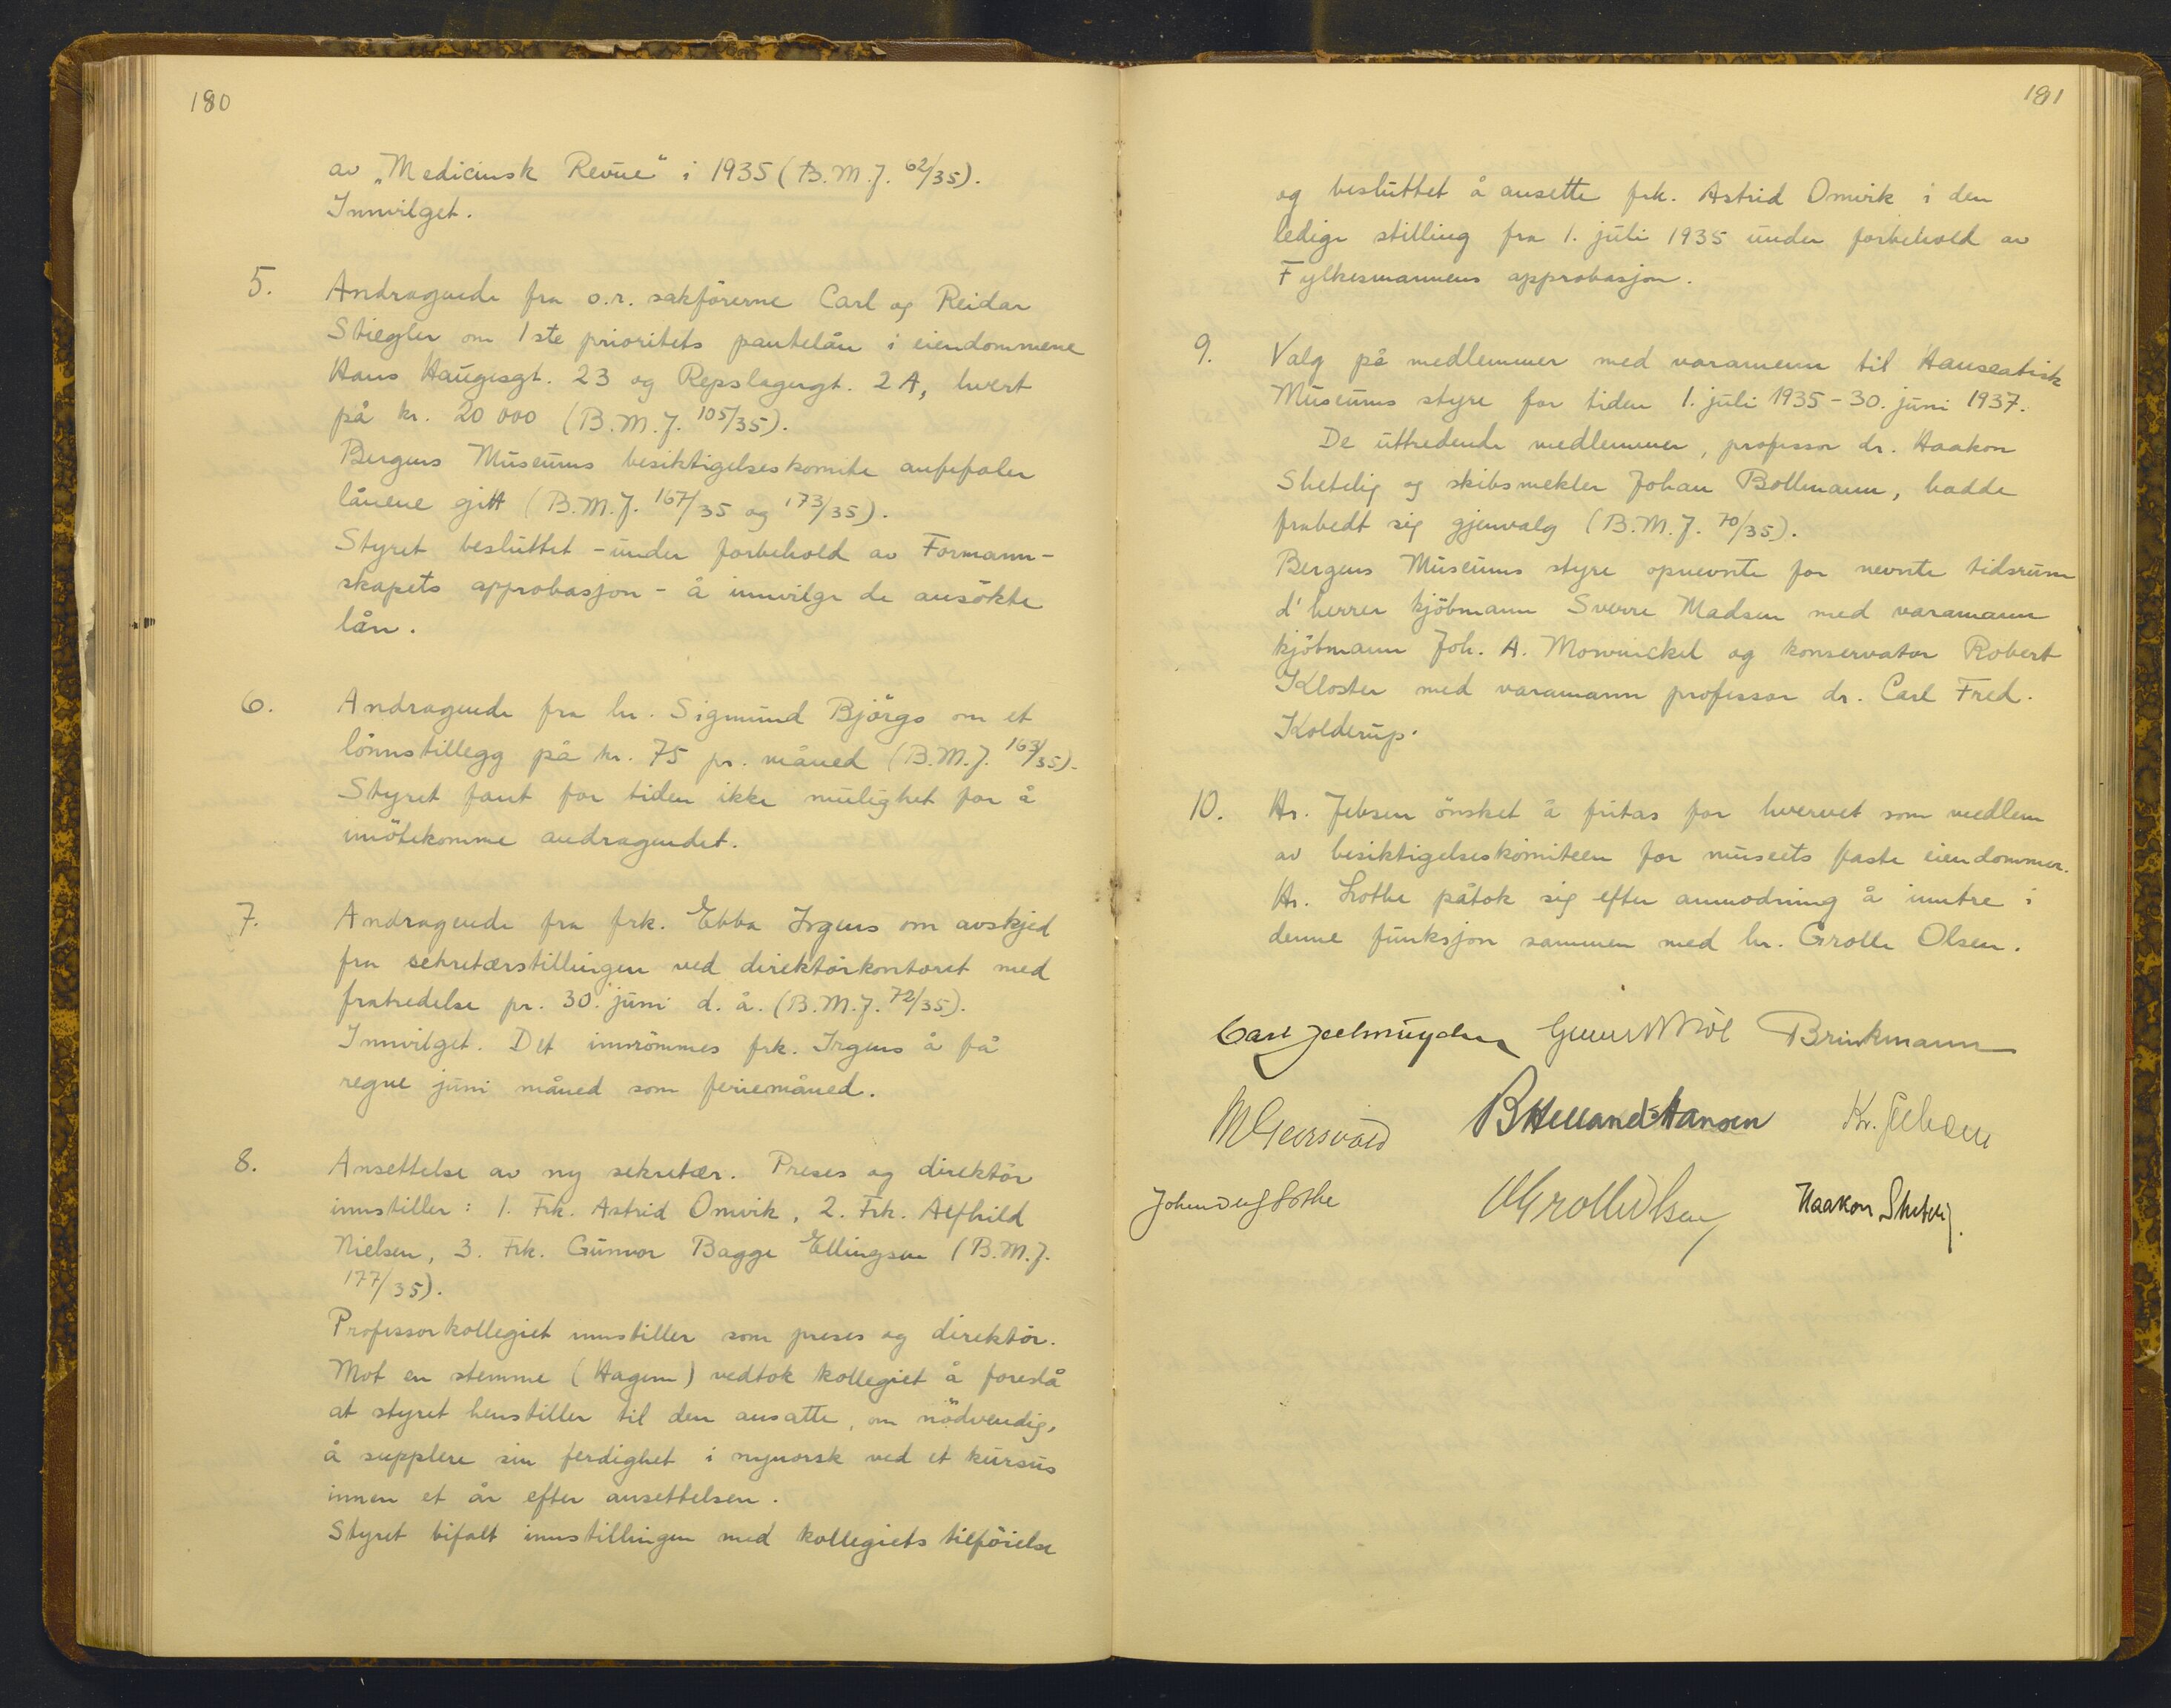 180
av „Medicinsk Revue“ i 1935 (B.M.J. 62/35).
Innvilget.
5. Andragende fra o.r. sakförerne Carl og Reidar
Stiegler om 1ste prioritets pantelån i eiendommene
Hans Haugesgt. 23 og Repslagergt. 2A, hvert
på kr. 20 000 (B.M.J. 105/35).
Bergens Museums besiktigelseskomite anbefaler
lånene gitt (B.M.J. 167/35 og 173/35).
Styret besluttet - under forbehold av Formann-
skapets approbasjon - å innvilge de ansökte
lån.
6. Andragende fra hr. Sigmund Björgo om et
lönnstillegg på kr. 75 pr. måned (B.M.J. 163/35).
Styret fant for tiden ikke mulighet for å
imötekomme andragendet.
7. Andragende fra frk. Ebba Irgens om avskjed
fra sekretærstillingen ved direktörkontoret med
fratredelse pr. 30. juni d. å. (B.M.J. 72/35).
Innvilget. Det innrömmes frk. Irgens å få
regne juni måned som feriemåned.
8. Ansettelse av ny sekretær. Preses og direktör
innstiller: 1. Frk. Astrid Omvik, 2. Frk. Alfhild
Nielsen, 3. Frk. Gunvor Bagge Ellingsen (B.M.J.
177/35).
Professorkollegiet innstiller som preses og direktör.
Mot en stemme (Hagem) vedtok kollegiet å foreslå
at styret henstiller til den ansatte, om nödvendig,
å supplere sin ferdighet i nynorsk ved et kursus
innen et år efter ansettelsen.
Styret bifalt innstillingen med kollegiets tilföielse
181
og besluttet å ansette frk. Astrid Omvik i den
ledige stilling fra 1. juli 1935 under forbehold av
Fylkesmannens approbasjon.
9. Valg på medlemmer med varamenn til Hanseatisk
Museums styre for tiden 1. juli 1935 - 30. juni 1937.
De uttredende medlemmer, professor dr. Haakon
Shetelig og skibsmekler Johan Bollmann, hadde
frabedt sig gjenvalg (B.M.J. 70/35).
Bergens Museums styre opnevnte for nevnte tidsrum
d'herrer kjöbmann Sverre Madsen med varamann
kjöbmann Joh. A. Mowinckel og konservator Robert
Kloster med varamann professor dr. Carl Fred.
Kolderup.
10. Hr. Jebsen önsket å fritas for hvervet som medlem
av besiktigelseskomiteen for museets faste eiendommer.
Hr. Lothe påtok sig efter anmodning å inntre i
denne funksjon sammen med hr. Grolle Olsen.
Carl Joelmuyden Brinkmann
M Geirsvold BHelland-Hansen Kr. Jebsen
Lothe Grolle Olsen Haakon Shetelig.